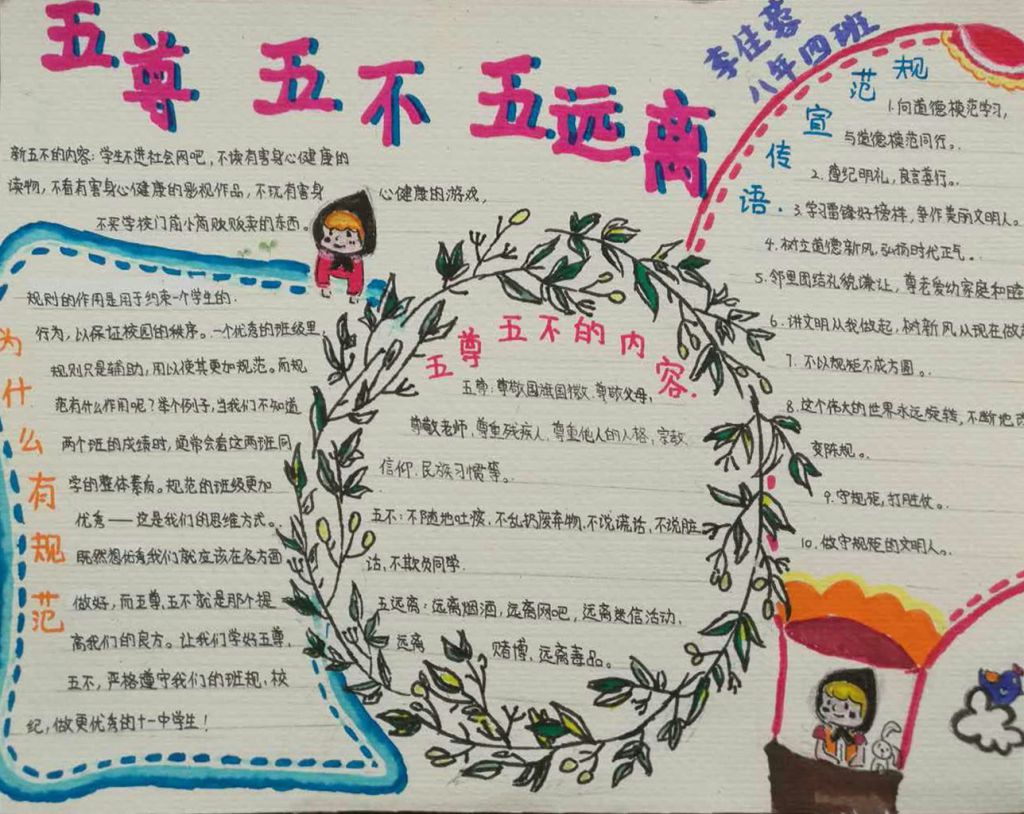 五尊 五不 五远离
李佳蓉
八年四班
新五不的内容:学生不进社会网吧,不读有害身心健康的
读物,不看有害身心健康的影视作品,不玩有害身心健康的游戏,
不买学校门前小商贩贩卖的东西。
为什么有规范
规则的作用是用于约束一个学生的
行为,以保证校园的秩序。一个优秀的班级里,
规则只是辅助,用以使其更加规范。而规
范有什么作用呢?举个例子,当我们不知道
两个班的成绩时,通常会看这两班同
学的整体素质。规范的班级更加
优秀——这是我们的思维方式。
既然想优秀我们就应该在各方面
做好,而五尊,五不就是那个提
高我们的良方。让我们学好五尊,
五不,严格遵守我们的班规,校
纪,做更优秀的十一中学生!
五尊五不的内容
五尊:尊敬国旗国徽.尊敬父母,
尊敬老师,尊重残疾人,尊重他人的人格,宗教
信仰.民族习惯等。
五不:不随地吐痰,不乱扔废弃物,不说谎话,不说脏
话,不欺负同学.
五远离:远离烟酒,远离网吧,远离迷信活动,
远离赌博,远离毒品。
规范宣传语.
1.向道德模范学习,
与道德模范同行。
2.遵纪明礼,良言善行。
3.学习雷锋好榜样,争作美丽文明人。
4.树立道德新风,弘扬时代正气。
5.邻里团结礼貌谦让,尊老爱幼家庭和睦
6.讲文明从我做起,树新风从现在做起
7.不以规矩不成方圆。
8.这个伟大的世界永远旋转,不断地改
变陈规。
9.守规矩,打胜仗。
10.做守规矩的文明人。